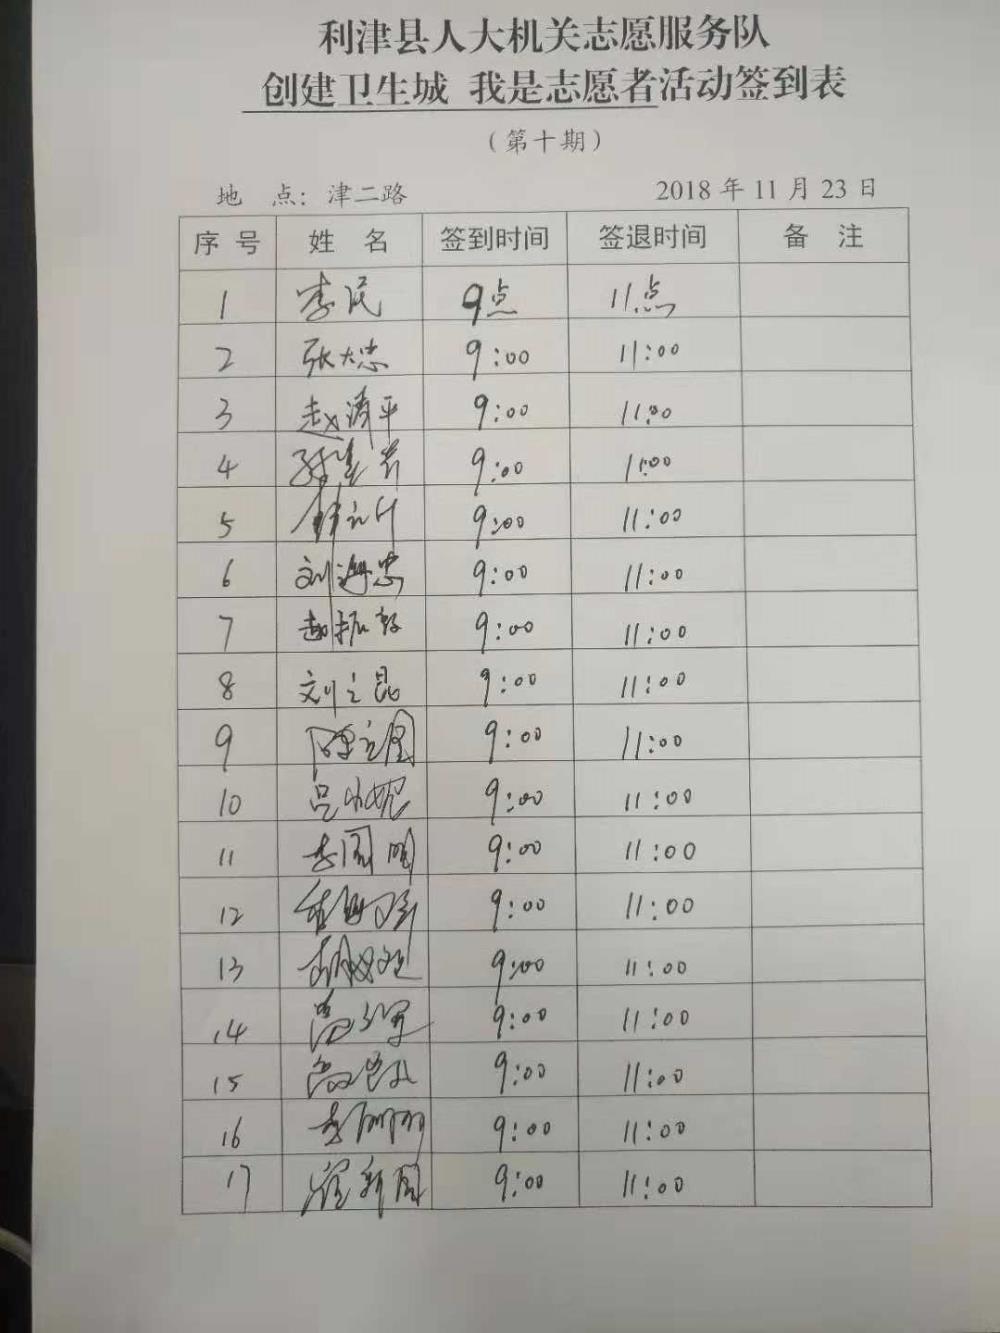 利津县人大机关志愿服务队
创建卫生城 我是志愿者活动签到表
（第十期）
地 点：津二路 2018年11月23日
序号 姓 名 签到时间 签退时间 备 注
1 李民 9点 11点
2 张大忠 9:00 11:00
3 赵涛平 9:00 11:00
4 9:00 1:00
5 9:00 11:00
6 刘海忠 9:00 11:00
7 赵振 9:00 11:00
8 刘立昆 9:00 11:00
9 陈立国 9:00 11:00
10 吕小妮 9:00 11:00
11 李国明 9:00 11:00
12 9:00 11:00
13 9:00 11:00
14 9:00 11:00
15 9:00 11:00
16 李丽丽 9:00 11:00
17 崔新国 9:00 11:00